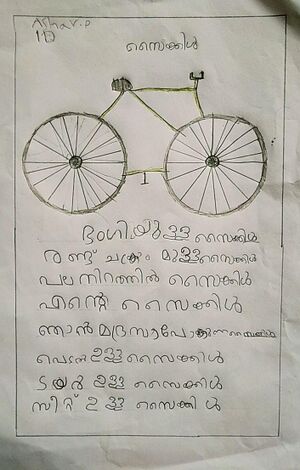 Ashar.P
1D
സൈക്കിൾ
ഭംഗിയുള്ള സൈക്കിൾ
രണ്ട് ചക്രം മുള്ള സൈക്കിൾ
പല നിറത്തിൽ സൈക്കിൾ
എന്റെ സൈക്കിൾ
ഞാൻ മദ്രസാപോകുന്ന സൈക്കിൾ
പെഡൽ ഉള്ള സൈക്കിൾ
ടയർ ഉള്ള സൈക്കിൾ
സീറ്റ് ഉള്ള സൈക്കിൾ